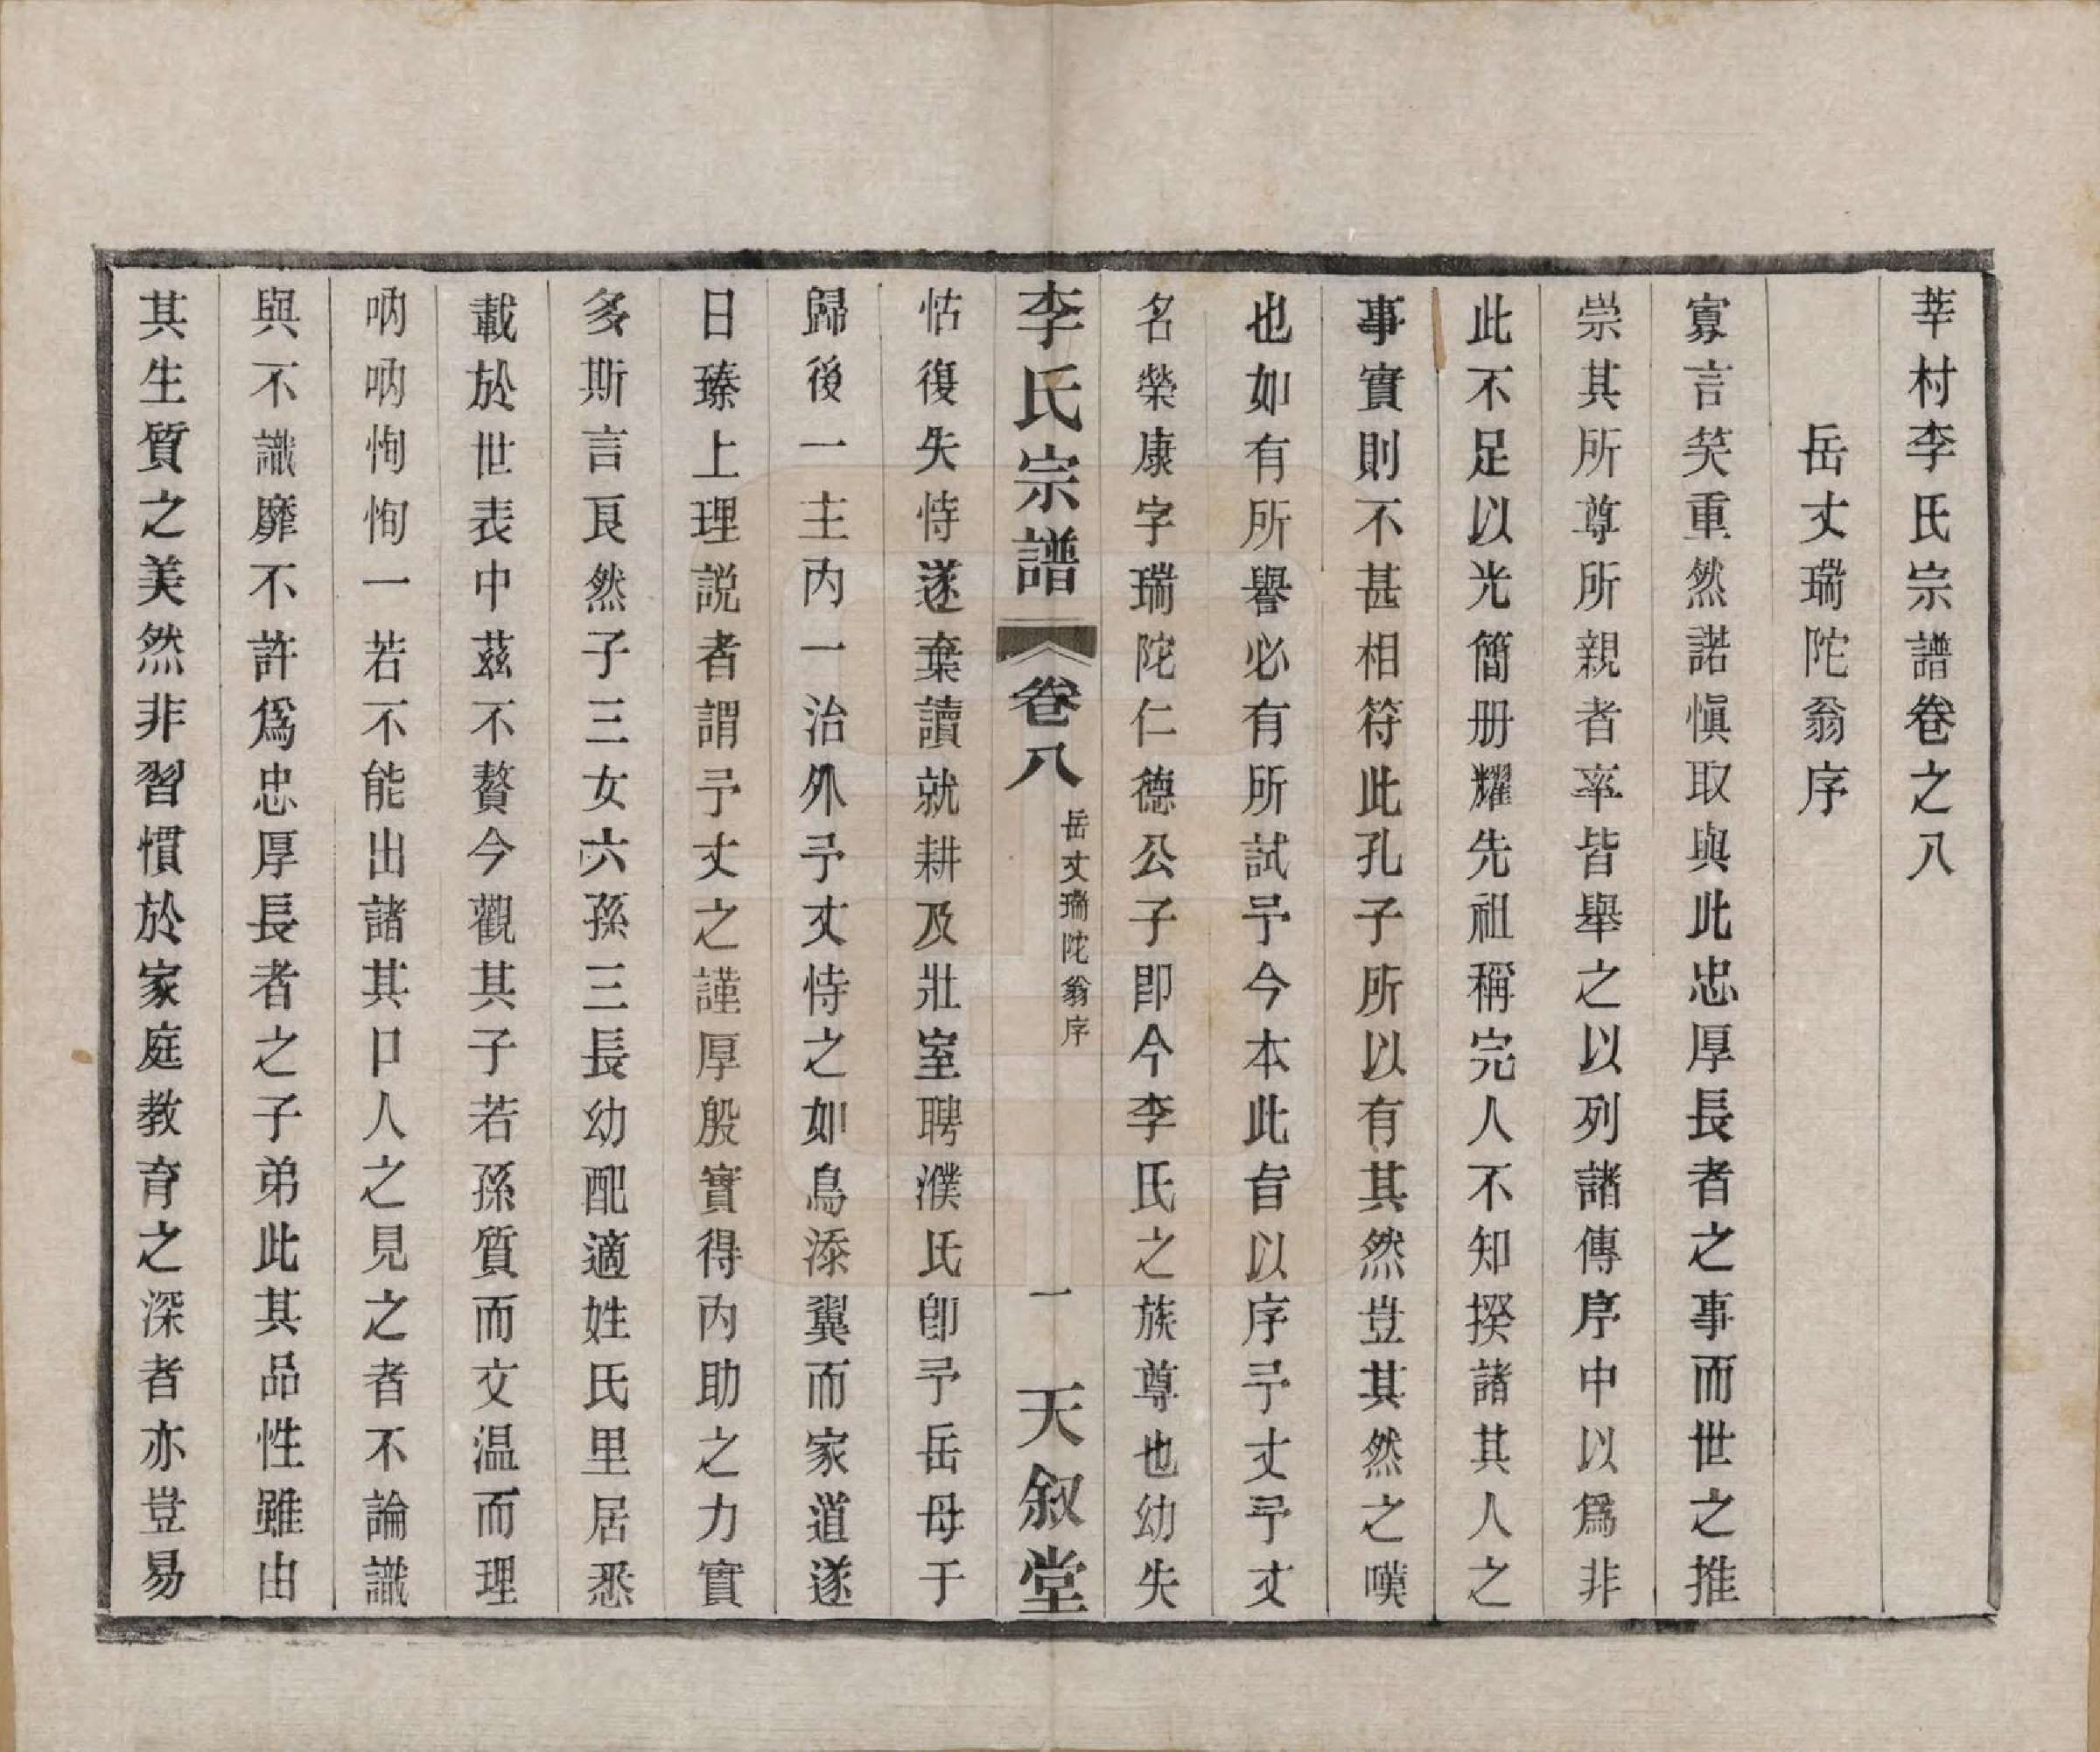 莘村李氏宗譜卷之八
岳丈瑞陀翁序
寡言笑重然諾愼取與此忠厚長者之事而世之推
崇其所尊所親者率皆舉之以列諸傳序中以爲非
此不足以光簡册耀先祖稱完人不知揆諸其人之
事實則不甚相符此孔子所以有其然豈其然之嘆
也如有所譽必有所試予今本此旨以序予丈予丈
名榮康字瑞陀仁德公子即今李氏之族尊也幼失
李氏宗譜
卷八
岳丈瑞陀翁序
一
天敘堂
怙復失恃遂棄讀就耕及壯室聘濮氏卽予岳母于
歸後一主內一治外予丈恃之如鳥添翼而家道遂
日臻上理説者謂予丈之謹厚殷實得內助之力實
多斯言良然子三女六孫三長幼配適姓氏里居悉
載於世表中茲不贅今觀其子若孫質而文温而理
吶吶恂恂一若不能出諸其口人之見之者不論識
與不識靡不許爲忠厚長者之子弟此其品性雖由
其生質之美然非習慣於家庭教育之深者亦豈易